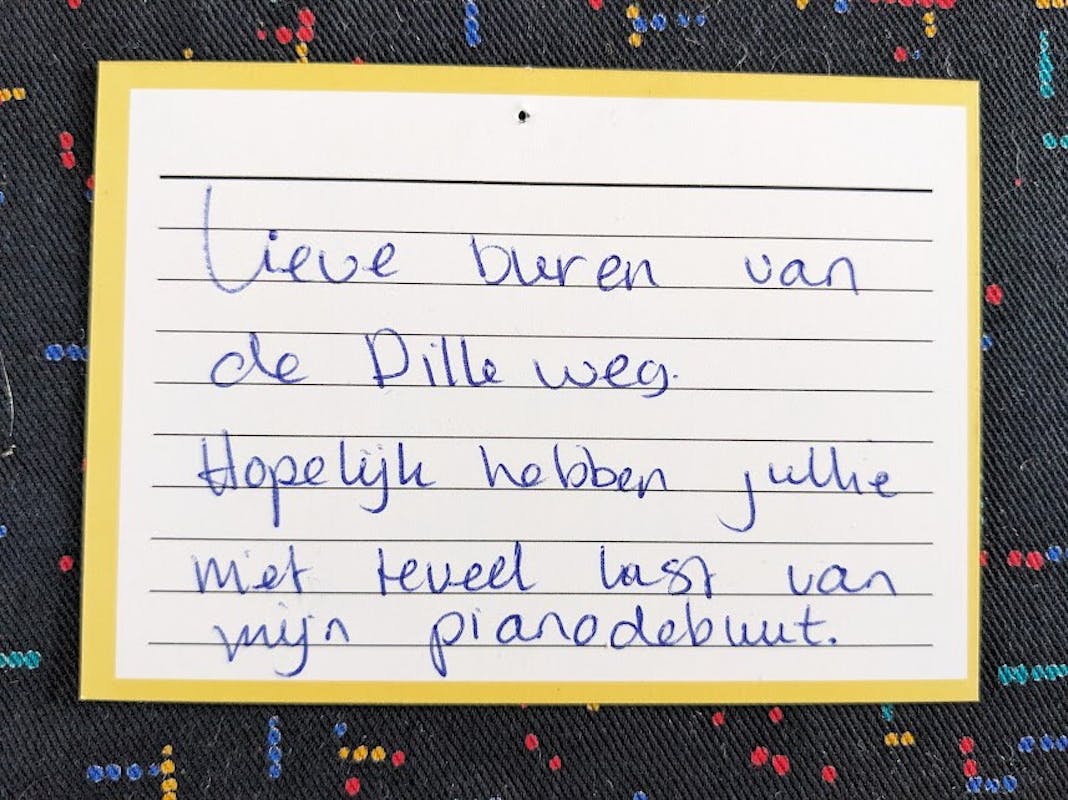 Lieve buren van
de Dilleweg.
Hopelijk hebben jullie
niet teveel last van
mijn pianodebuut.